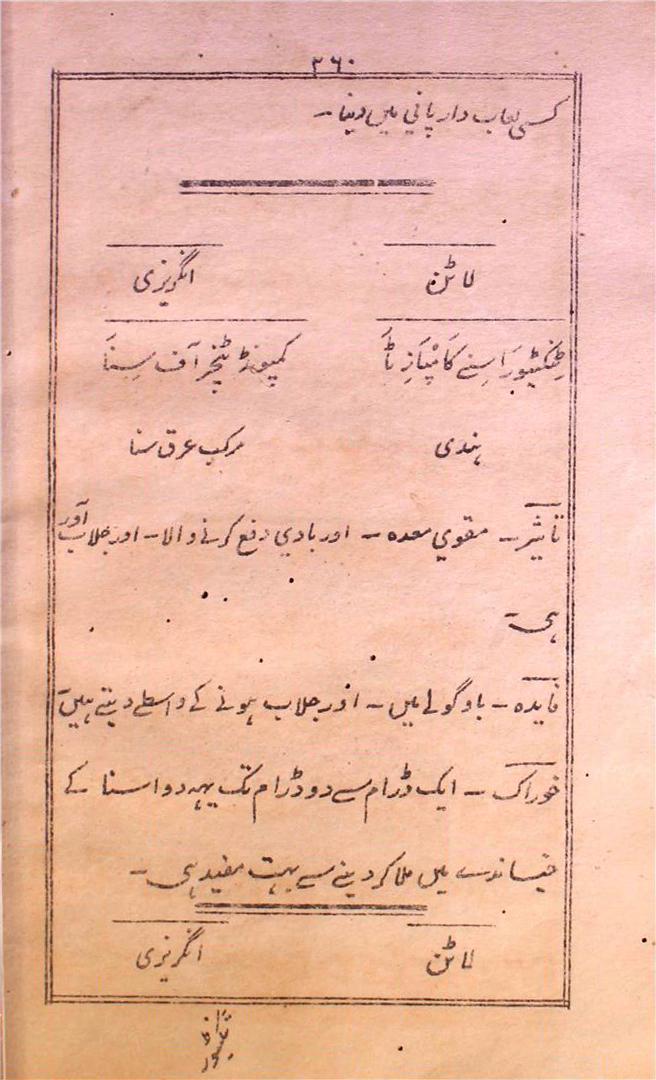 ۳۶۰
کسی لعاب دار پانی میں دینا۔
لاٹن انگریزی
ٹِنکٹیورَا سِنے کَامپَازِٹَا کمپونڈ ٹنچر آف سِنَا
ہندی مرکب عرق سنا
تاثیر۔ مقوی معدہ ۔ اور بادی دفع کرنے والا۔ اور جلاب آور
ہی۔
فایدہ ۔ باو گولے میں ۔ اور جلاب ہونے کے واسطے دیتے ہیں۔
خوراک ۔ ایک ڈرام سے دو ڈرام تک یہہ دوا سنا کے
خیساندے میں ملا کر دینے سے بہت مفید ہی ۔
لاٹن انگریزی